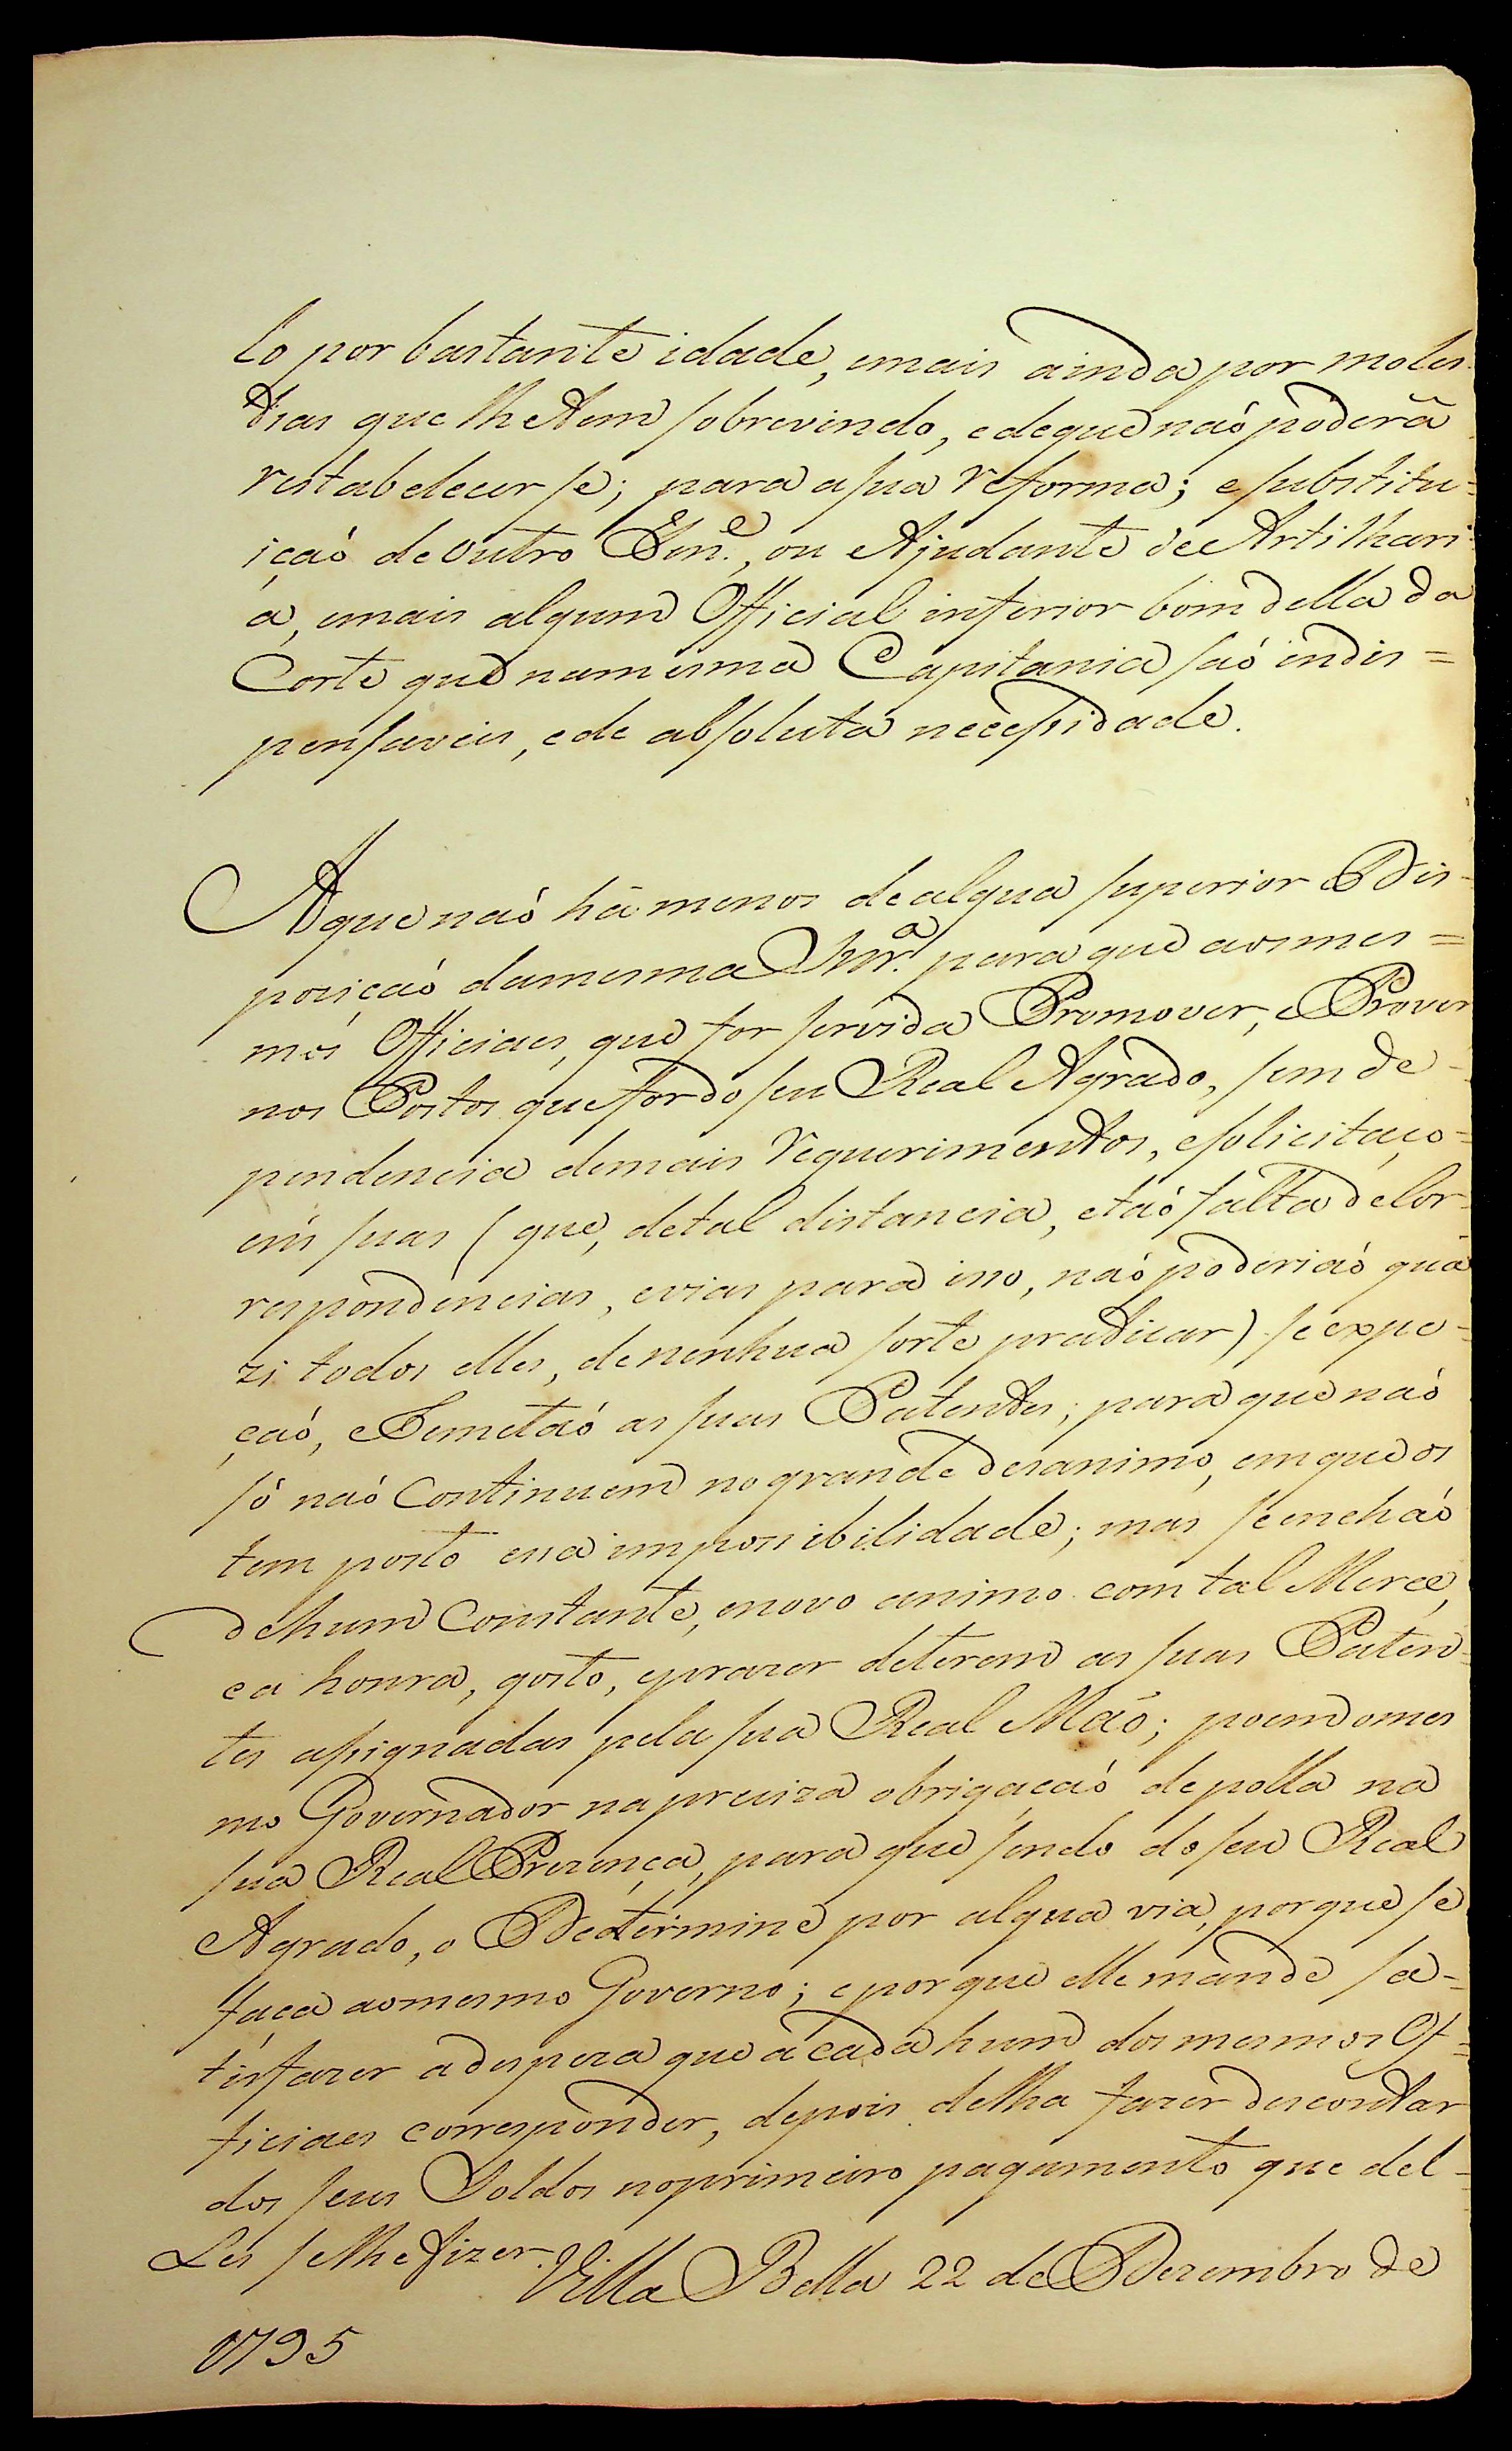 lo por bastante idade, emais ainda por moles-
tias que lhe tem sobrevindo, edeque naó poderá
restabelecer se; para asua reforma; e substitu=
içaó de outro Ten.e, ou Ajudante de Artilhari
a, emais algum Official inferior bom della da
Corte que namesma Capitania saó indis=
pensaveis, ede absoluta necessidade.
Aque naó há menos de algua superior Dis-
posiçaó damesma Snr.a para que aosmes=
mos Officiaes, que for servida Promover, e Prover
nos Postos que for do seu Real Agrado, sem de-
pendencia demais requerimentos, esolicitaço=
ens suas (que, detal distancia, etaó falta de Cor-
respondencias, evias para isso, naó poderiaó qua
zi todos elles, de nenhua sorte praticar) se expe-
çaó, e Remetaó as suas Patentes; para que naó
só naó Continuem no grande desanimo, emque os
tem posto essa impossibilidade; mas seencháo
dehum Constante, enovo animo com tal Merce,
ea honra, gosto, eprazer deterem as suas Paten=
tes assignadas pela sua Real Máo; poemdomes
mo Governador napreciza obrigaçaó de polla na
sua Real Prezença, para que sendo do seu Real
Agrado, o Determine por algua via, porque se
faça aomesmo Governo; eporque elle mande sa-
tisfazer adespeza que a cada hum dosmesmos Of=
ficiaes corresponder, depois delha fazer descontar
dos seus Soldos noprimeiro pagamento que del-
Les selhe fizer. Villa Bella 22 de Dezembro de
1795